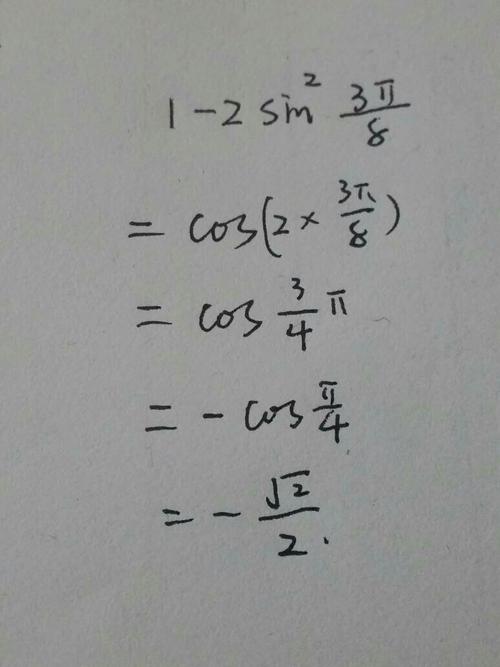 1-2 sin² 3π/8
= cos(2× 3π/8)
= cos 3/4 π
= - cos π/4
= - √2/2.